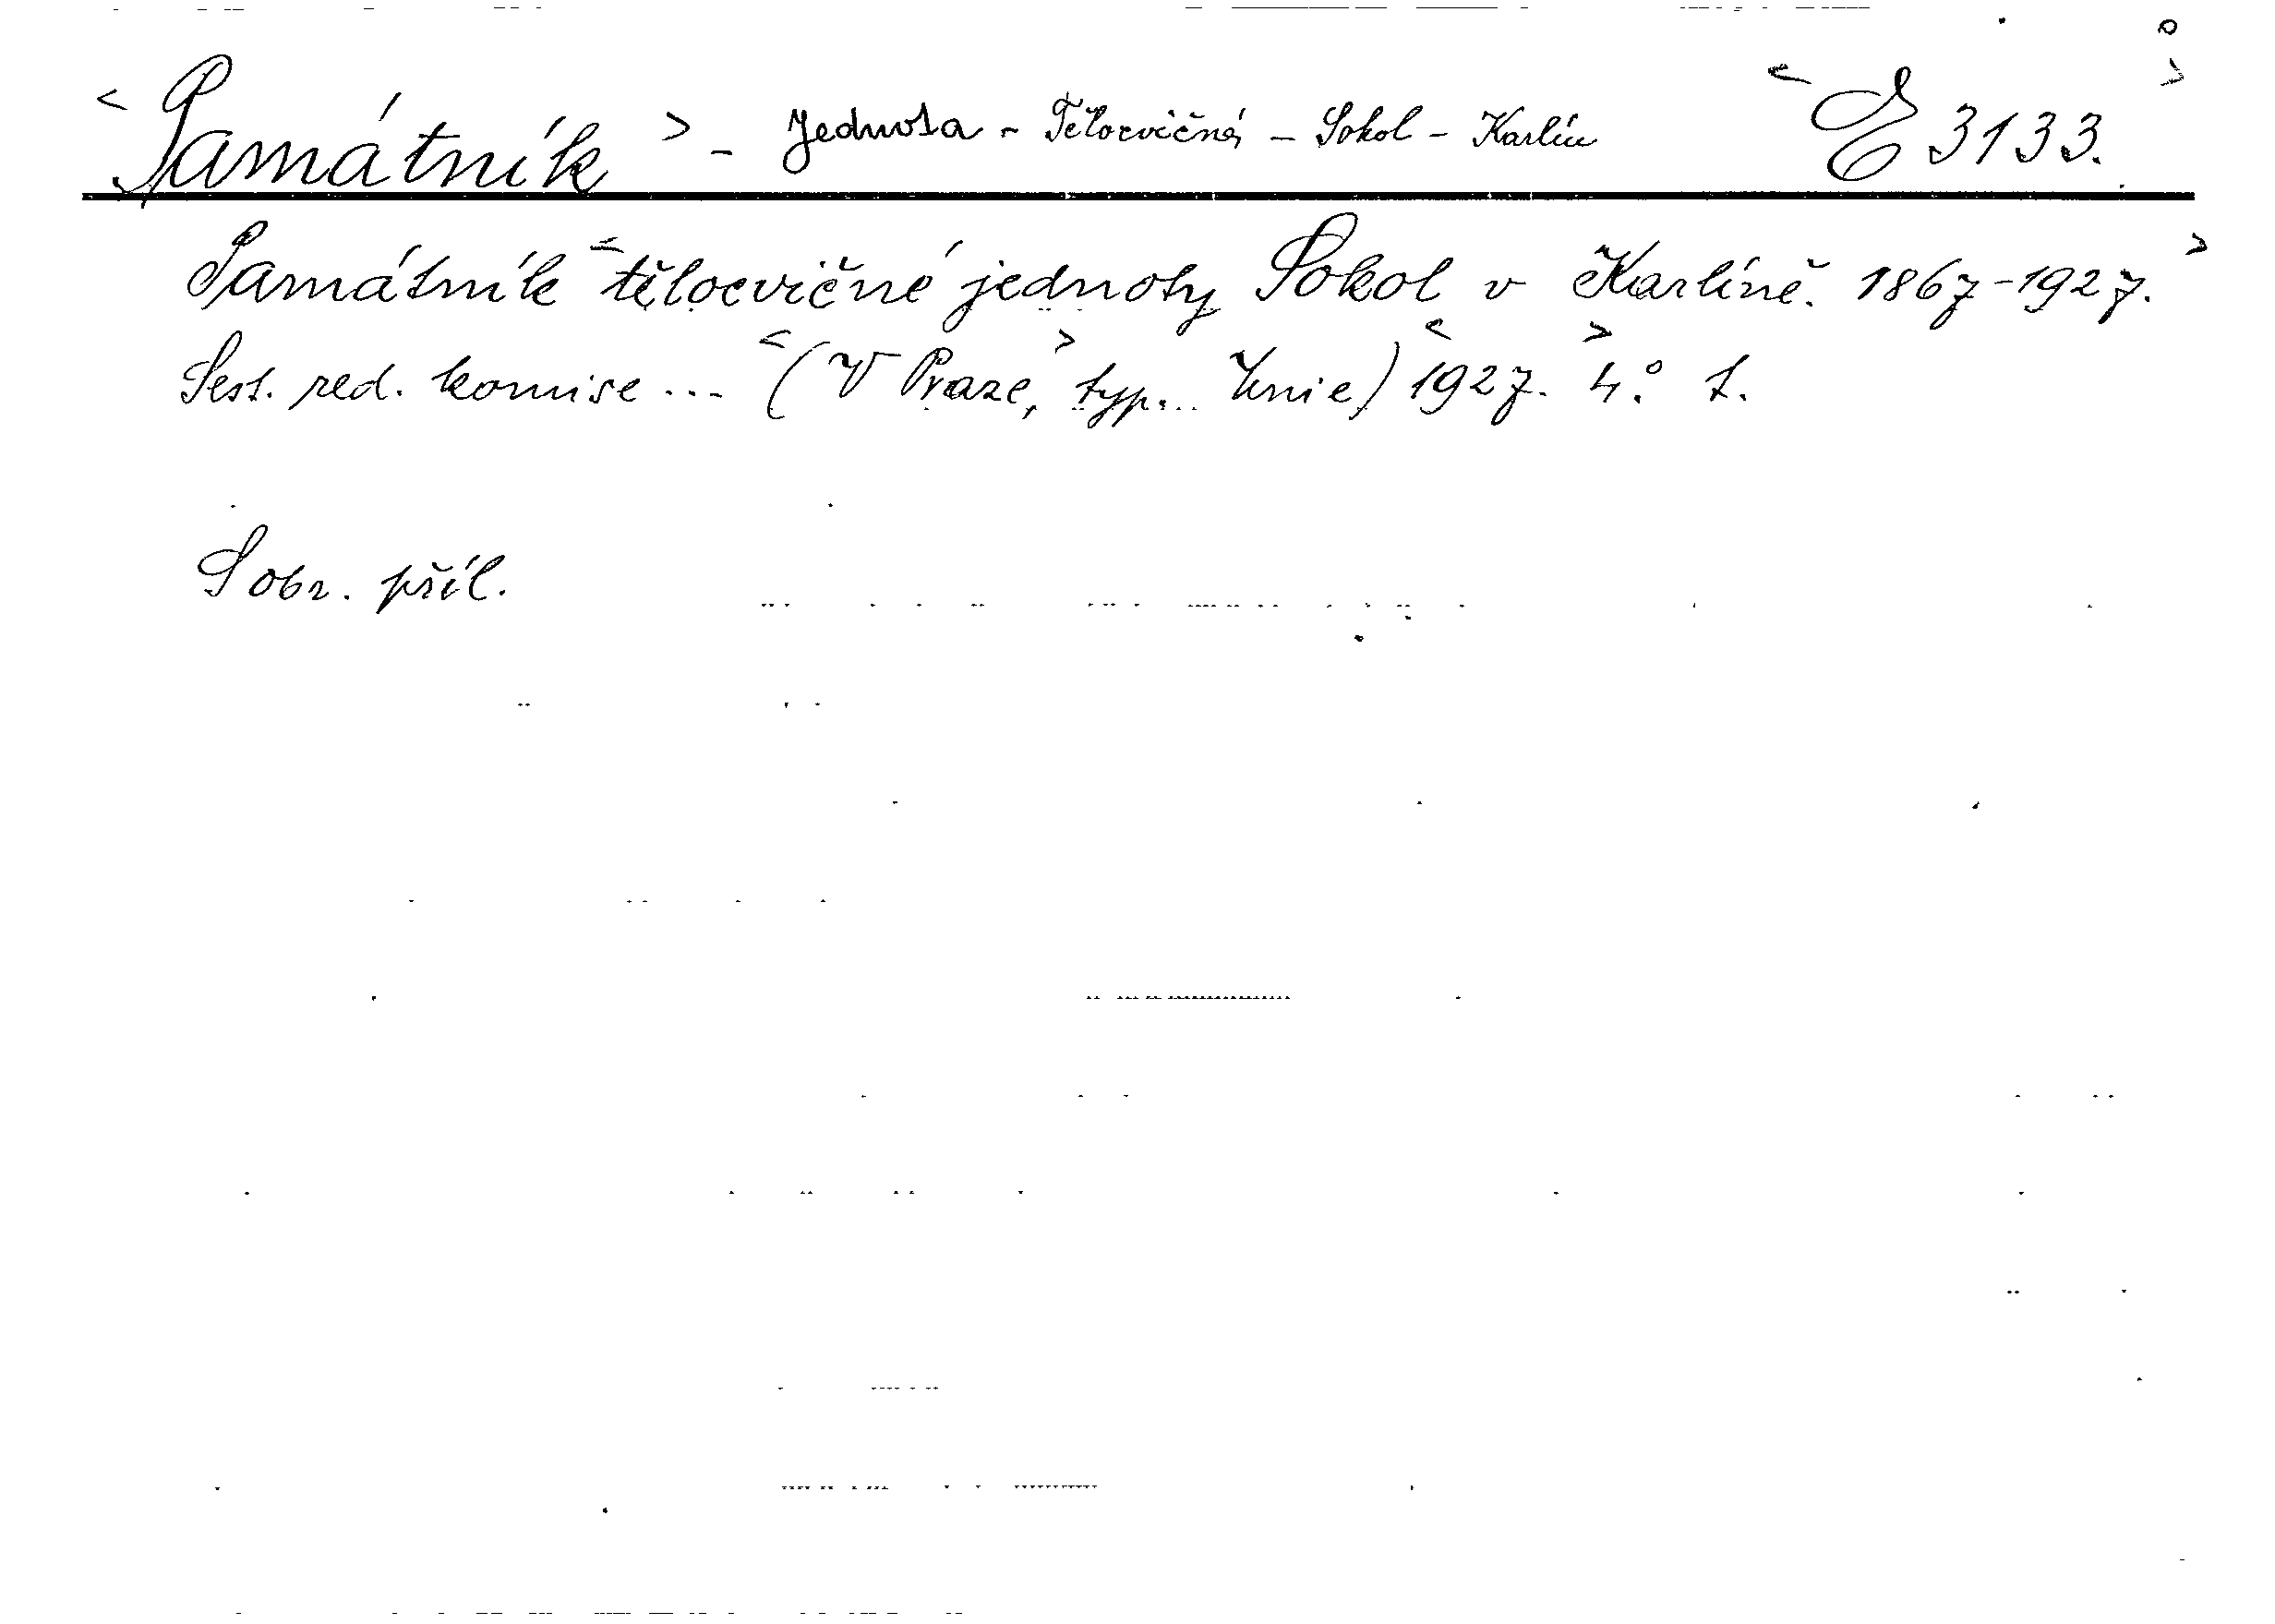 <Památník> - Jednota - Tělocvičná - Sokol - Karlín <E 3133.>
Památník <tělocvičné jednoty Sokol v Karlíně. 1867-1927.>
Sest. red. komise ... <(V Praze,> typ... Unie) <1927.> 4.° 1.
S obr. příl.